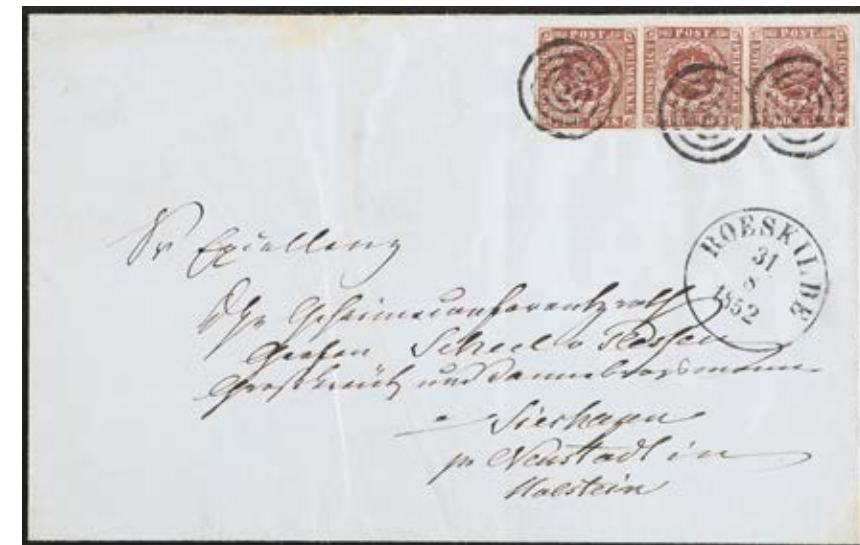 POST POST POST
ROESKILDE
31
8
1852
Sr Excellenz
Geheimeconferentzrath
Grafen Scheel v Plessen
Großkreutz und Dannebrogsmann
Sierhagen
pr Neustadt in
Holstein